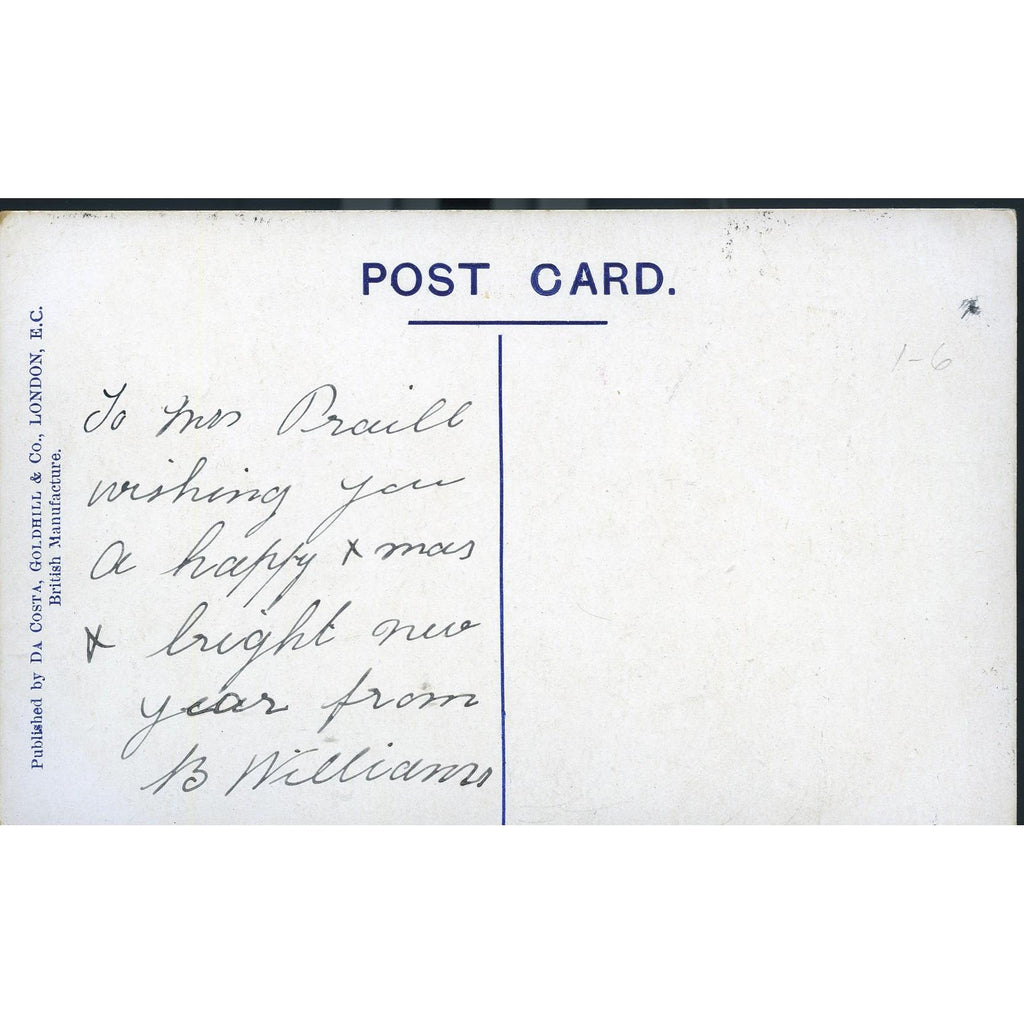 POST CARD.
Published by DA COSTA, GOLDHILL & Co., LONDON, E.C.
British Manufacture.
To Mrs Praill
wishing you
A happy x mas
& bright new
year from
B Williams
1-6